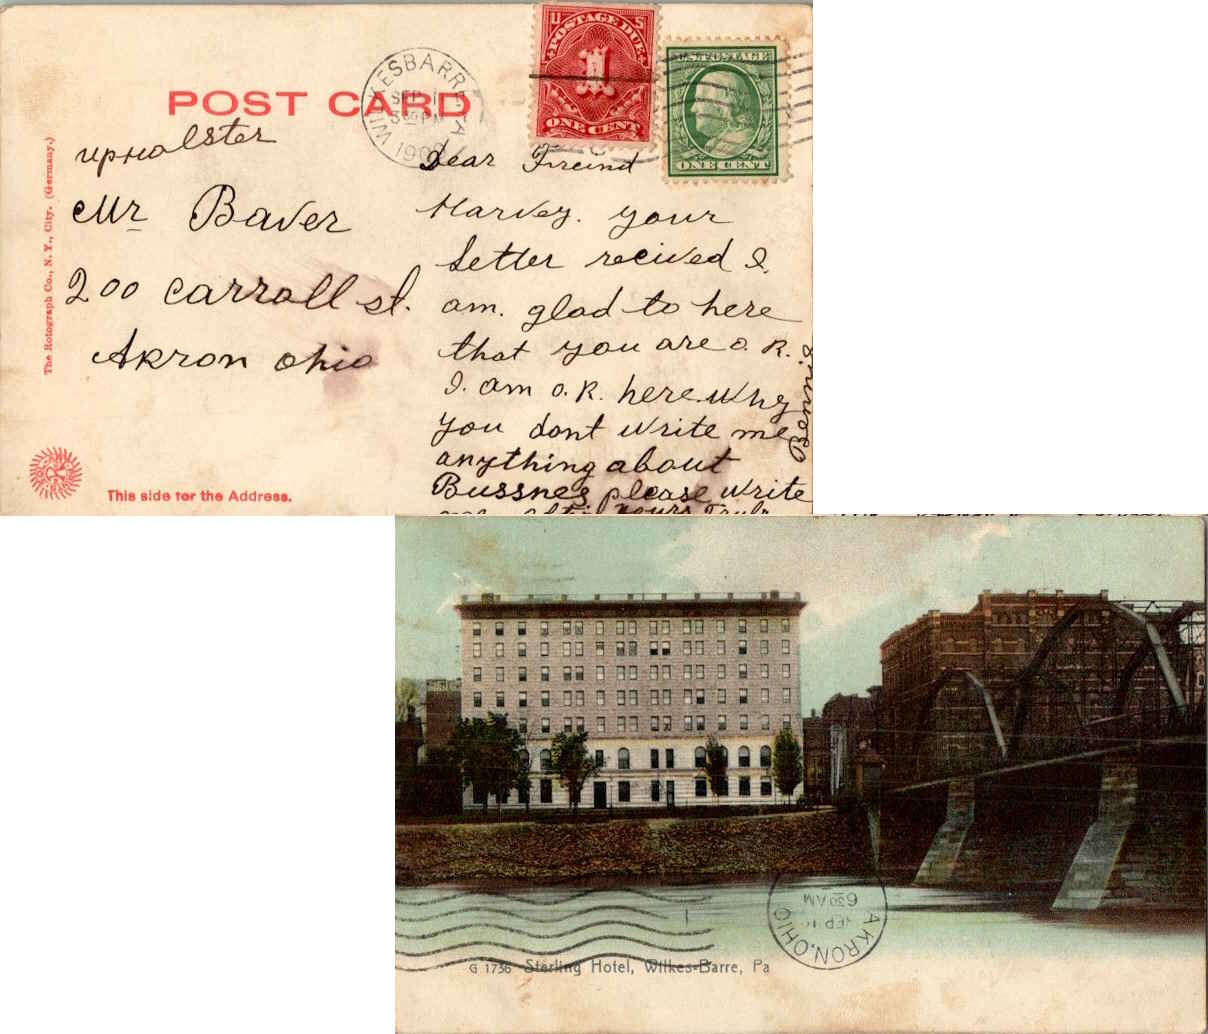 POST CARD
WILKESBARRE
SEP 1
PM
U S
POSTAGE DUE
1
ONE CENT
U.S. POSTAGE
ONE CENT
The Rotograph Co., N. Y., City. (Germany.)
upholster
Mr Baver
200 carroll st.
Akron ohio
This side for the Address.
Dear Freind
Harvey. your
Letter recived I.
am. glad to here
that you are o. K.
I. am o. K. here. why
you dont write me
anything about
Bussnes please write
yours
Bennie
AKRON, OHIO
SEP 1
630 AM
G 1736 Sterling Hotel, Wilkes-Barre, Pa